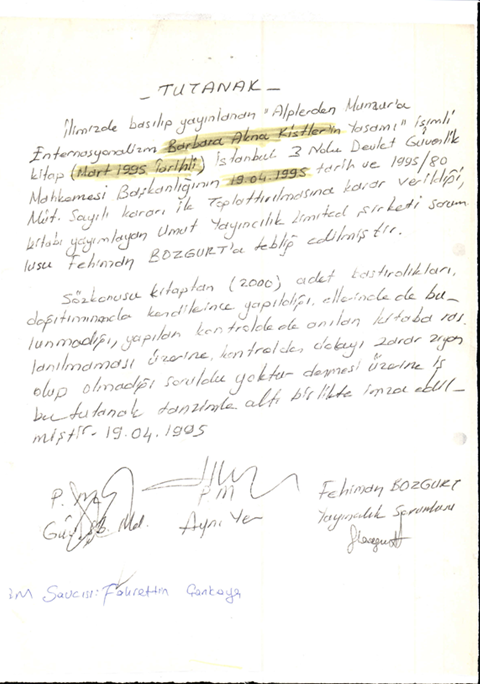 _ TUTANAK _
İlimizde basılıp yayınlanan "Alplerden Munzur'a
Enternasyonalizm Barbara Akna Kistler'in Yaşamı" isimli
kitap (Mart 1995 Tarihli) İstanbul 3 Nolu Devlet Güvenlik
Mahkemesi Başkanlığının 19.04.1995 tarih ve 1995/80
Müt. Sayılı kararı ile Toplattırılmasına karar verildiği,
kitabı yayımlayan Umut Yayıncılık Limited şirketi sorum
lusu Fehiman BOZGURT'a tebliğ edilmiştir.
Sözkonusu kitaptan (2000) adet bastırdıkları,
dağıtımınında kendilerince yapıldığı, ellerinde de bu-
lunmadığı, yapılan kontrolde de anılan kitaba ras
lanılmaması üzerine, kontrolden dolayı zarar ziyan
olup olmadığı soruldu yoktur demesi üzerine iş
bu tutanak tanzimle altı birlikte imza edil-
miştir - 19.04.1995
P. M. P M Fehiman BOZGURT
Md. Aynı Yer Yayıncılık Sorumlusu
Savcısı: Fahrettin